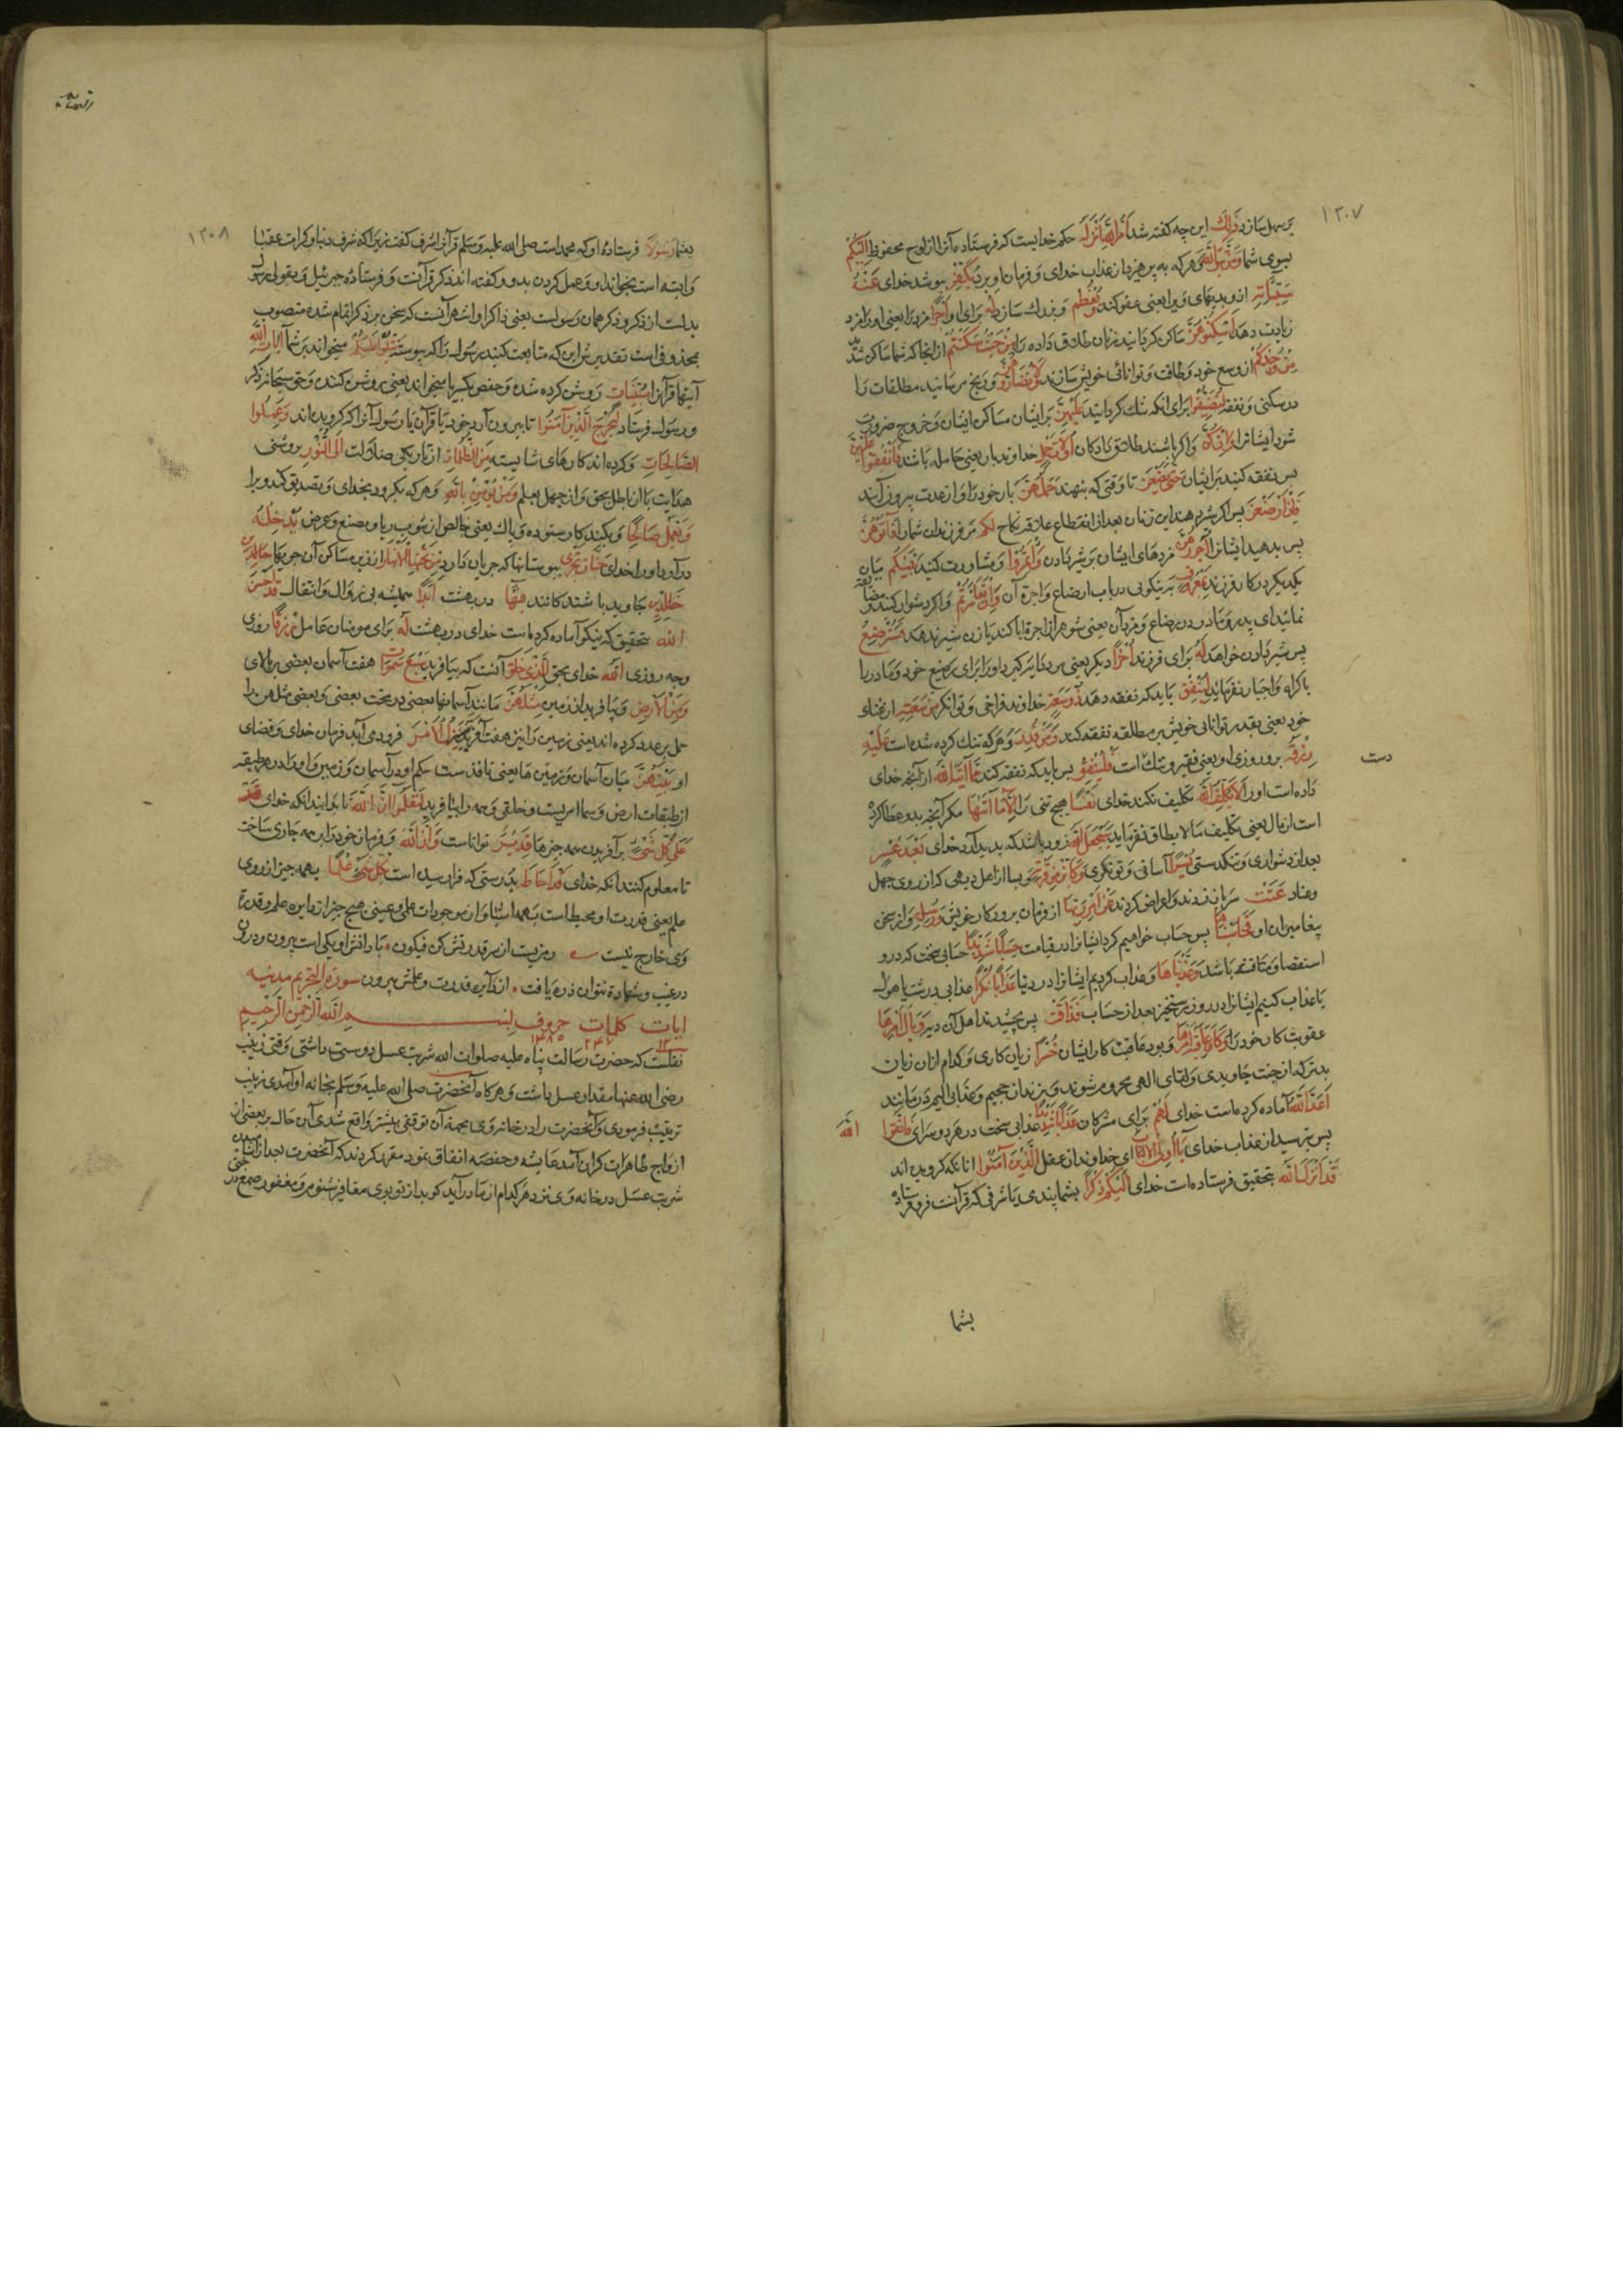 ١٢٠٧
بر سهل سازد ذَلِكَ این چه کفته شد اَمْرُ اللهِ اَنْزَلَهُ حکم خدایست که فرستاده آنرا از لوح محفوظ اِلَيْكُمْ
بسوی شما وَمَنْ يَتَّقِ اللهَ وهرکه به پرهیزد از عذاب خدای و فرمان او برد يُكَفِّرْ بپوشد خدای عَنْهُ
سَيِّئَاتِهِ از وی بدیهای ویرا یعنی عفو کند وَيُعْظِمْ و بزرك سازد لَهُ برای او اَجْرًا مزد را یعنی او را مزد
زیادت دهد اَسْكِنُوهُنَّ ساکن کردانید زنان طلاق داده را مِنْ حَيْثُ سَكَنْتُمْ از انجا که شما ساکن شدید
مِنْ وُجْدِكُمْ از وسع خود و طاقت و توانائی خویش سازند وَلَا تُضَارُّوهُنَّ و رنج مرسانید مطلقات را
در سکنی و نفقه لِتُضَيِّقُوا برای انکه تنك کردانید عَلَيْهِنَّ بر ایشان مساکن ایشان و خروج ضرورت
شود ایشانرا وَاِنْ كُنَّ واکر باشند طلاق دادکان اُولَاتِ حَمْلٍ خداوند بار یعنی حامله باشند فَاَنْفِقُوا عَلَيْهِنَّ
پس نفقه کنید بر ایشان حَتَّى يَضَعْنَ تا وقتی که بنهند حَمْلَهُنَّ بار خود را و از عدت بیرون آیند
فَاِنْ اَرْضَعْنَ پس اکر شیر دهند این زنان بعد از انقطاع علاقه نکاح لَكُمْ مر فرزندان شما را فَآتُوهُنَّ
پس بدهید ایشانرا اُجُورَهُنَّ مزدهای ایشان بر شیر دادن وَأْتَمِرُوا و مشاورت کنید بَيْنَكُمْ میان
یکدیکر در کار فرزند بِمَعْرُوفٍ بنیکویی در باب ارضاع و اجرة آن وَاِنْ تَعَاسَرْتُمْ واکر دشوار کنید و مضایقه
نمائید ای پدر و مادر در رضاع و مزد آن یعنی شوهر از اجرة ابا کند یا زن شیر ندهد فَسَتُرْضِعُ
پس شیر دادن خواهد لَهُ برای فرزند اُخْرَى دیکر یعنی مرد دایه کیرد او را برای رضیع خود و مادر را
باکراه و اجبار نفرماید لِيُنْفِقْ باید که نفقه دهد ذُو سَعَةٍ خداوند فراخی و توانکر مِنْ سَعَتِهِ از غنای
خود یعنی بقدر توانائی خویش بر مطلقه نفقه کند وَمَنْ قُدِرَ وهرکه تنك کرده شده است عَلَيْهِ
دست
رِزْقُهُ برو روزی او یعنی فقیر و تنك است فَلْيُنْفِقْ پس باید که نفقه کند مِمَّا آتَاهُ اللهُ از آنچه خدای
داده است او را لَا يُكَلِّفُ اللهُ تکلیف نکند خدای نَفْسًا هیچ تنی را اِلَّا مَا آتَاهَا مکر آنچه بدو عطا کرده
است از مال یعنی تکلیف ما لا یطاق نفرماید سَيَجْعَلُ اللهُ زود باشد که پدید آرد خدای بَعْدَ عُسْرٍ
بعد از دشواری و تنکدستی يُسْرًا آسانی و تونکری وَكَاَيِّنْ مِنْ قَرْيَةٍ و بسا از اهل دیهی که از روی جهل
و عناد عَتَتْ سر باز زدند و اعراض کردند عَنْ اَمْرِ رَبِّهَا از فرمان پروردکار خویش وَرُسُلِهِ و از سخن
پیغامبران او فَحَاسَبْنَاهَا پس حساب خواهیم کرد ایشانرا در قیامت حِسَابًا شَدِيدًا حسابی سخت که درو
استقصا و مناقشه باشد وَعَذَّبْنَاهَا و عذاب کردیم ایشانرا در دنیا عَذَابًا نُكْرًا عذابی درشت یا هول
یا عذاب کنیم ایشانرا در روز رستخیز بعد از حساب فَذَاقَتْ پس بچشیدند اهل آن دیه وَبَالَ اَمْرِهَا
عقوبت کار خود را وَكَانَ عَاقِبَةُ اَمْرِهَا و بود عاقبت کار ایشان خُسْرًا زیان کاری و کدام ازان زیان
بدتر که از جنت جاویدی و لقای الهی محروم شوند و بزندان جحیم و عذاب الیم درمانند
اَعَدَّ اللهُ آماده کرده است خدای لَهُمْ برای مشرکان عَذَابًا شَدِيدًا عذابی سخت در هر دو سرای فَاتَّقُوا الله
پس بترسید از عذاب خدای يَا اُولِي الْاَلْبَابِ ای خداوندان عقل الَّذِينَ آمَنُوا انانکه کرویده اند
قَدْ اَنْزَلَ اللهُ بتحقیق فرستاده است خدای اِلَيْكُمْ ذِكْرًا بشما پندی یا شرفی که قرآنست فرو فرستاده
بشما
١٢٠٨
بشما رَسُولًا فرستاده او که محمد است صلی الله علیه وسلم قرآنرا شرف کفت زیرا که شرف دنیا و کرامت عقبی
وابسته است بخواندن و عمل کردن بدو و کفته اند ذکر قرآنست و فرستاده جبرئیل و بقولی رسول
بدلست از ذکر و ذکر همان رسولست یعنی ذاکرا و اشهر آنست که سخن بر ذکرا تمام شده منصوب
بمحذوفی است تقدیرش این که متابعت کنید رسولی را که پیوسته يَتْلُو عَلَيْكُمْ میخواند بر شما آيَاتِ اللهِ
آیتهای قرآن مُبَيِّنَاتٍ روشن کرده شده و حفص بکسر یا میخواند یعنی روشن کننده و حق سبحانه ذکر
و رسول فرستاد لِيُخْرِجَ الَّذِينَ آمَنُوا تا بیرون آرد خود یا قرآن یا رسول آنرا که کرویده اند وَعَمِلُوا
الصَّالِحَاتِ و کرده اند کارهای شایسته مِنَ الظُّلُمَاتِ از تاریکی ضلالت اِلَى النُّورِ بروشنی
هدایت یا از باطل بحق و از جهل بعلم وَمَنْ يُؤْمِنْ بِاللهِ وهرکه بکرود بخدای و تصدیق کند ویرا
وَيَعْمَلْ صَالِحًا و بکند کار ستوده و پاك یعنی خالص از شوب ریا و تصنع و غرض يُدْخِلْهُ
درآرد او را خدای جَنَّاتٍ تَجْرِي ببوستانها که جریان دارد مِنْ تَحْتِهَا الْاَنْهَارُ از زیر مساکن آن جویها خَالِدِينَ
جاوید باشندکانند فِيهَا در بهشت اَبَدًا همیشه بی زوال و انتقال قَدْ اَحْسَنَ
اللهُ بتحقیق که نیکو آماده کرده است خدای در بهشت لَهُ برای مومنان عامل رِزْقًا روزی
وچه روزی اَللهُ خدای بحق الَّذِي خَلَقَ آنست که بیافرید سَبْعَ سَمٰوَاتٍ هفت آسمان بعضی بر بالای
وَمِنَ الْاَرْضِ و بیافرید از زمین مِثْلَهُنَّ مانند آسمانها بعضی در تحت بعضی و بعضی مثلهن را
حمل بر عدد کرده اند یعنی زمین را نیز هفت آفریده يَتَنَزَّلُ الْاَمْرُ فرود می آید فرمان خدای و قضای
او بَيْنَهُنَّ میان آسمان و زمین ها یعنی نافذ است حکم او در آسمان و زمین و او را در هر طبقه
از طبقات ارض و سما امریست و خلقی و همه را بیافرید لِتَعْلَمُوا اَنَّ اللهَ تا بدانید انکه خدای
عَلَى كُلِّ شَيْءٍ بر آفریدن همه چیزها قَدِيرٌ تواناست وَاَنَّ اللهَ و فرمان خود را بر همه جاری ساخت
تا معلوم کنند انکه خدای قَدْ اَحَاطَ بدرستی که فرا رسیده است بِكُلِّ شَيْءٍ عِلْمًا بهمه چیز از روی
علم یعنی قدرت او محیط است بهمه اشیا و از موجودات علمی و عینی هیچ چیز از دایره علم و قدرة
وی خارج نیست رمزیست از سر قدرتش کن فیکون ٭ با دانش او یکی است بیرون و درون
در غیب و شهادة نتوان ذره یافت ٭ از دایره قدرت و علمش بیرون سورة التحریم مدنیه
ایات کلمات حروف بسم الله الرحمن الرحیم
نقلست که حضرت رسالت پناه علیه صلوات الله شربت عسل دوست داشتی وقتی زینب
رضی الله عنها مقداری عسل داشت و هرکاه آنحضرت صلی الله علیه وسلم بخانه او آمدی زینب
ترتیب فرمودی و آنحضرت را در خانه وی بجهة آن توقفی بیشتر واقع شدی آن حال بر بعضی از
ازواج طاهرات کران آمد عایشه و حفصه اتفاق نموده مقرر کردند که آنحضرت بعد از آشامیدن
شربت عسل در خانه وی نزد هرکدام از ما درآید کوید از تو بوی مغافیر شنوم و مغفور صمغ